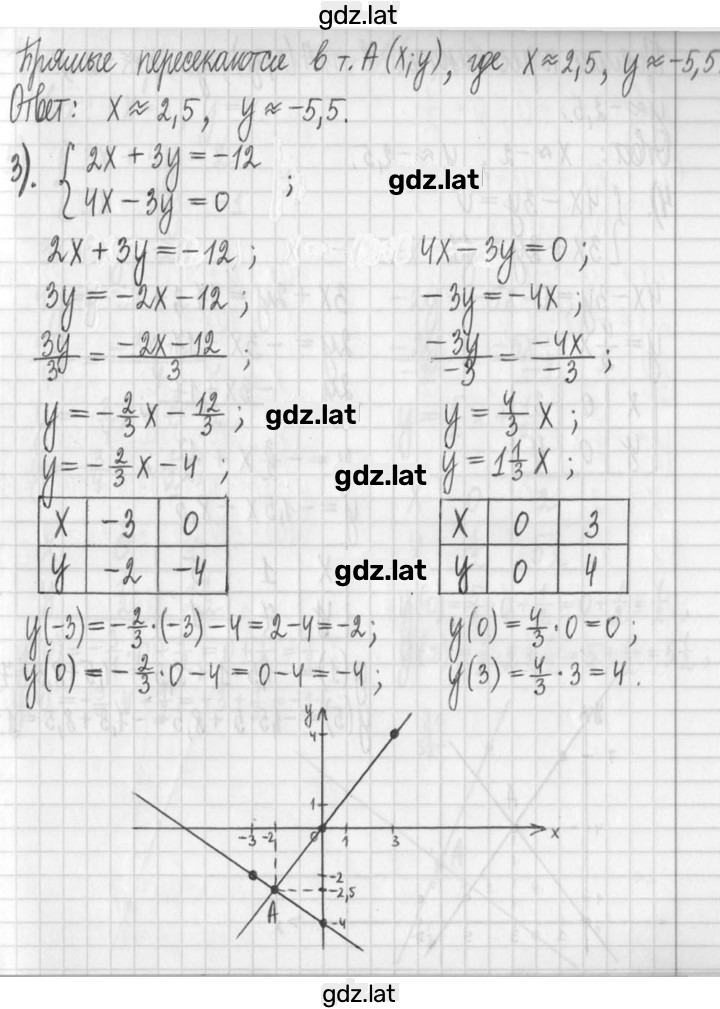 gdz.lat
Прямые пересекаются в т. A (x; y), где x ≈ 2,5, y ≈ -5,5
Ответ: x ≈ 2,5, y ≈ -5,5.
3). { 2x + 3y = -12
4x - 3y = 0 ;
gdz.lat
2x + 3y = -12 ; 4x - 3y = 0 ;
3y = -2x - 12 ; -3y = -4x ;
3y/3 = (-2x - 12)/3 ; -3y/-3 = -4x/-3 ;
y = - 2/3 x - 12/3 ; gdz.lat y = 4/3 x ;
y = - 2/3 x - 4 ; gdz.lat y = 1 1/3 x ;
x -3 0 x 0 3
y -2 -4 gdz.lat y 0 4
y(-3) = - 2/3 · (-3) - 4 = 2 - 4 = -2 ; y(0) = 4/3 · 0 = 0 ;
y(0) = - 2/3 · 0 - 4 = 0 - 4 = -4 ; y(3) = 4/3 · 3 = 4 .
y
4
1
-3 -2 0 1 3 x
-2
-2,5
A
-4
gdz.lat